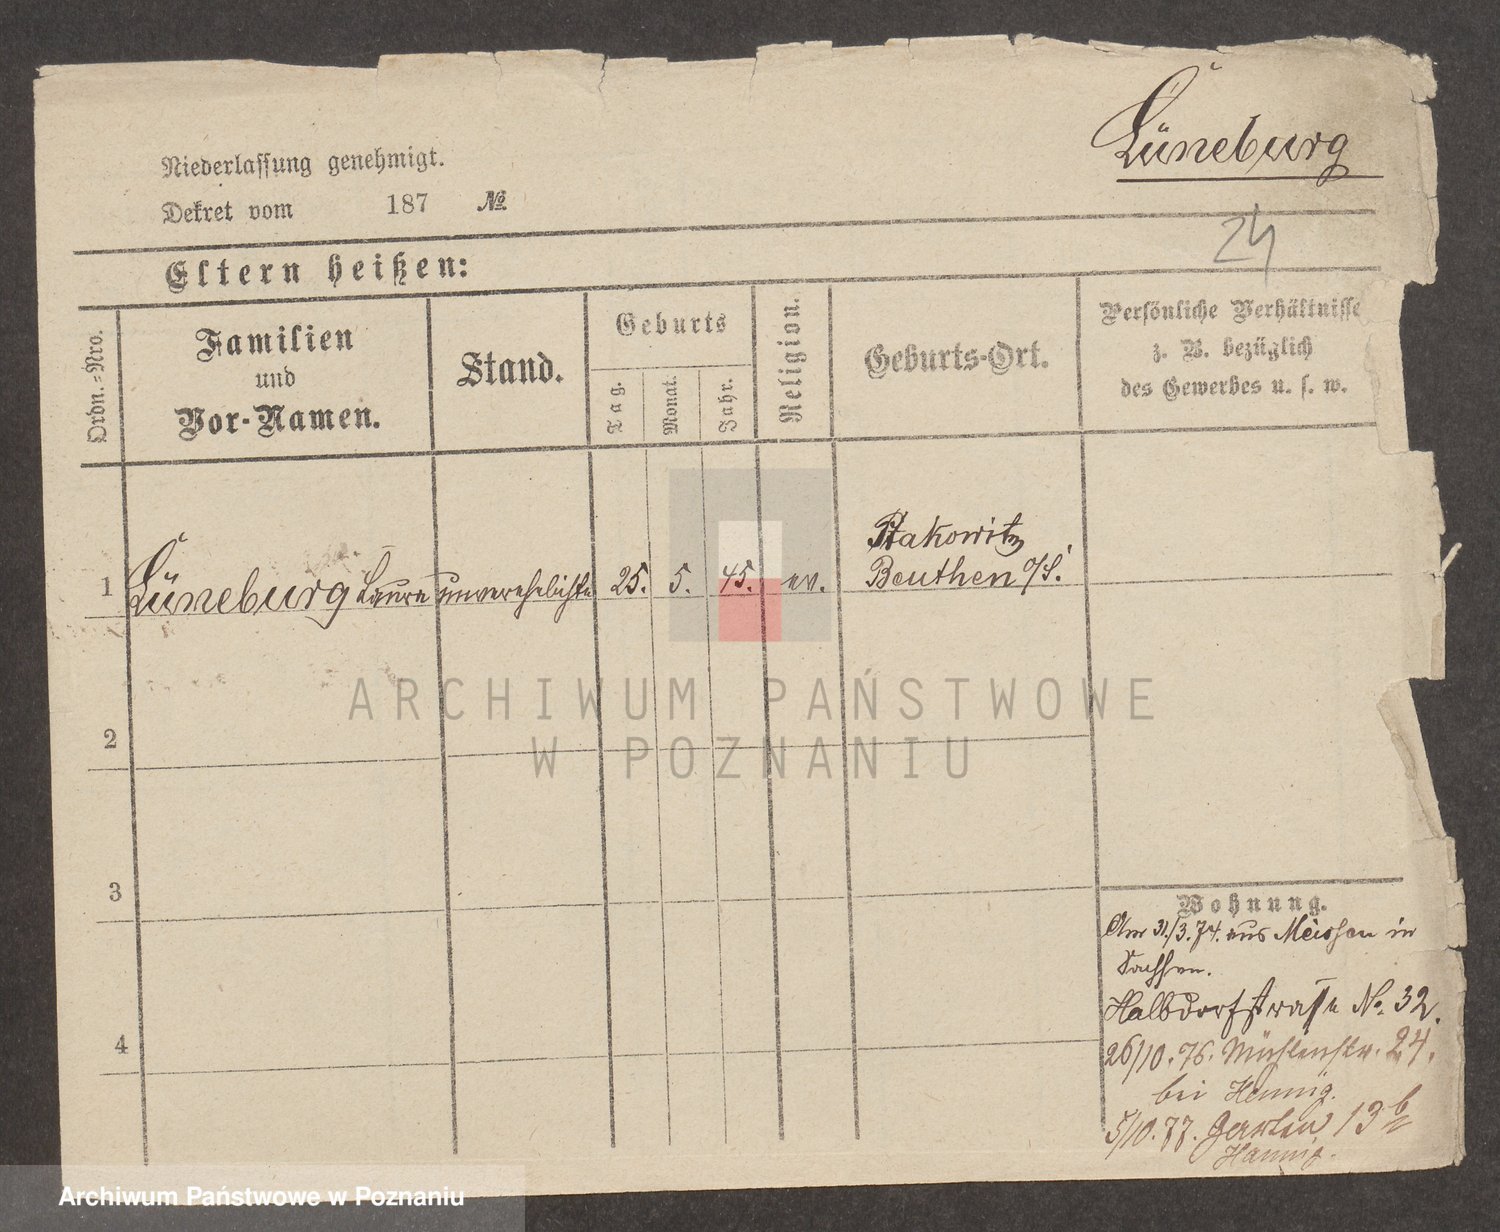 Lüneburg
Niederlassung genehmigt.
Dekret vom 187 №
24
Eltern heißen:
Ordn.=Nro.
Familien
und
Vor-Namen.
Stand.
Geburts
Tag.
Monat.
Jahr.
Religion.
Geburts-Ort.
Persönliche Verhältnisse
z. B. bezüglich
des Gewerbes u. s. w.
1 Lüneburg Laura unverehelichte 25. 5. 45. ev.
Beuthen O/S.
2
3
4
Wohnung.
31./3.74. aus Meissen in
Sachsen.
Halbdorfstrasse No. 32.
26/10.76. Mühlenstr. 24.
bei Hennig.
5/10.77. 13b
Hennig.
ARCHIWUM PAŃSTWOWE
W POZNANIU
Archiwum Państwowe w Poznaniu